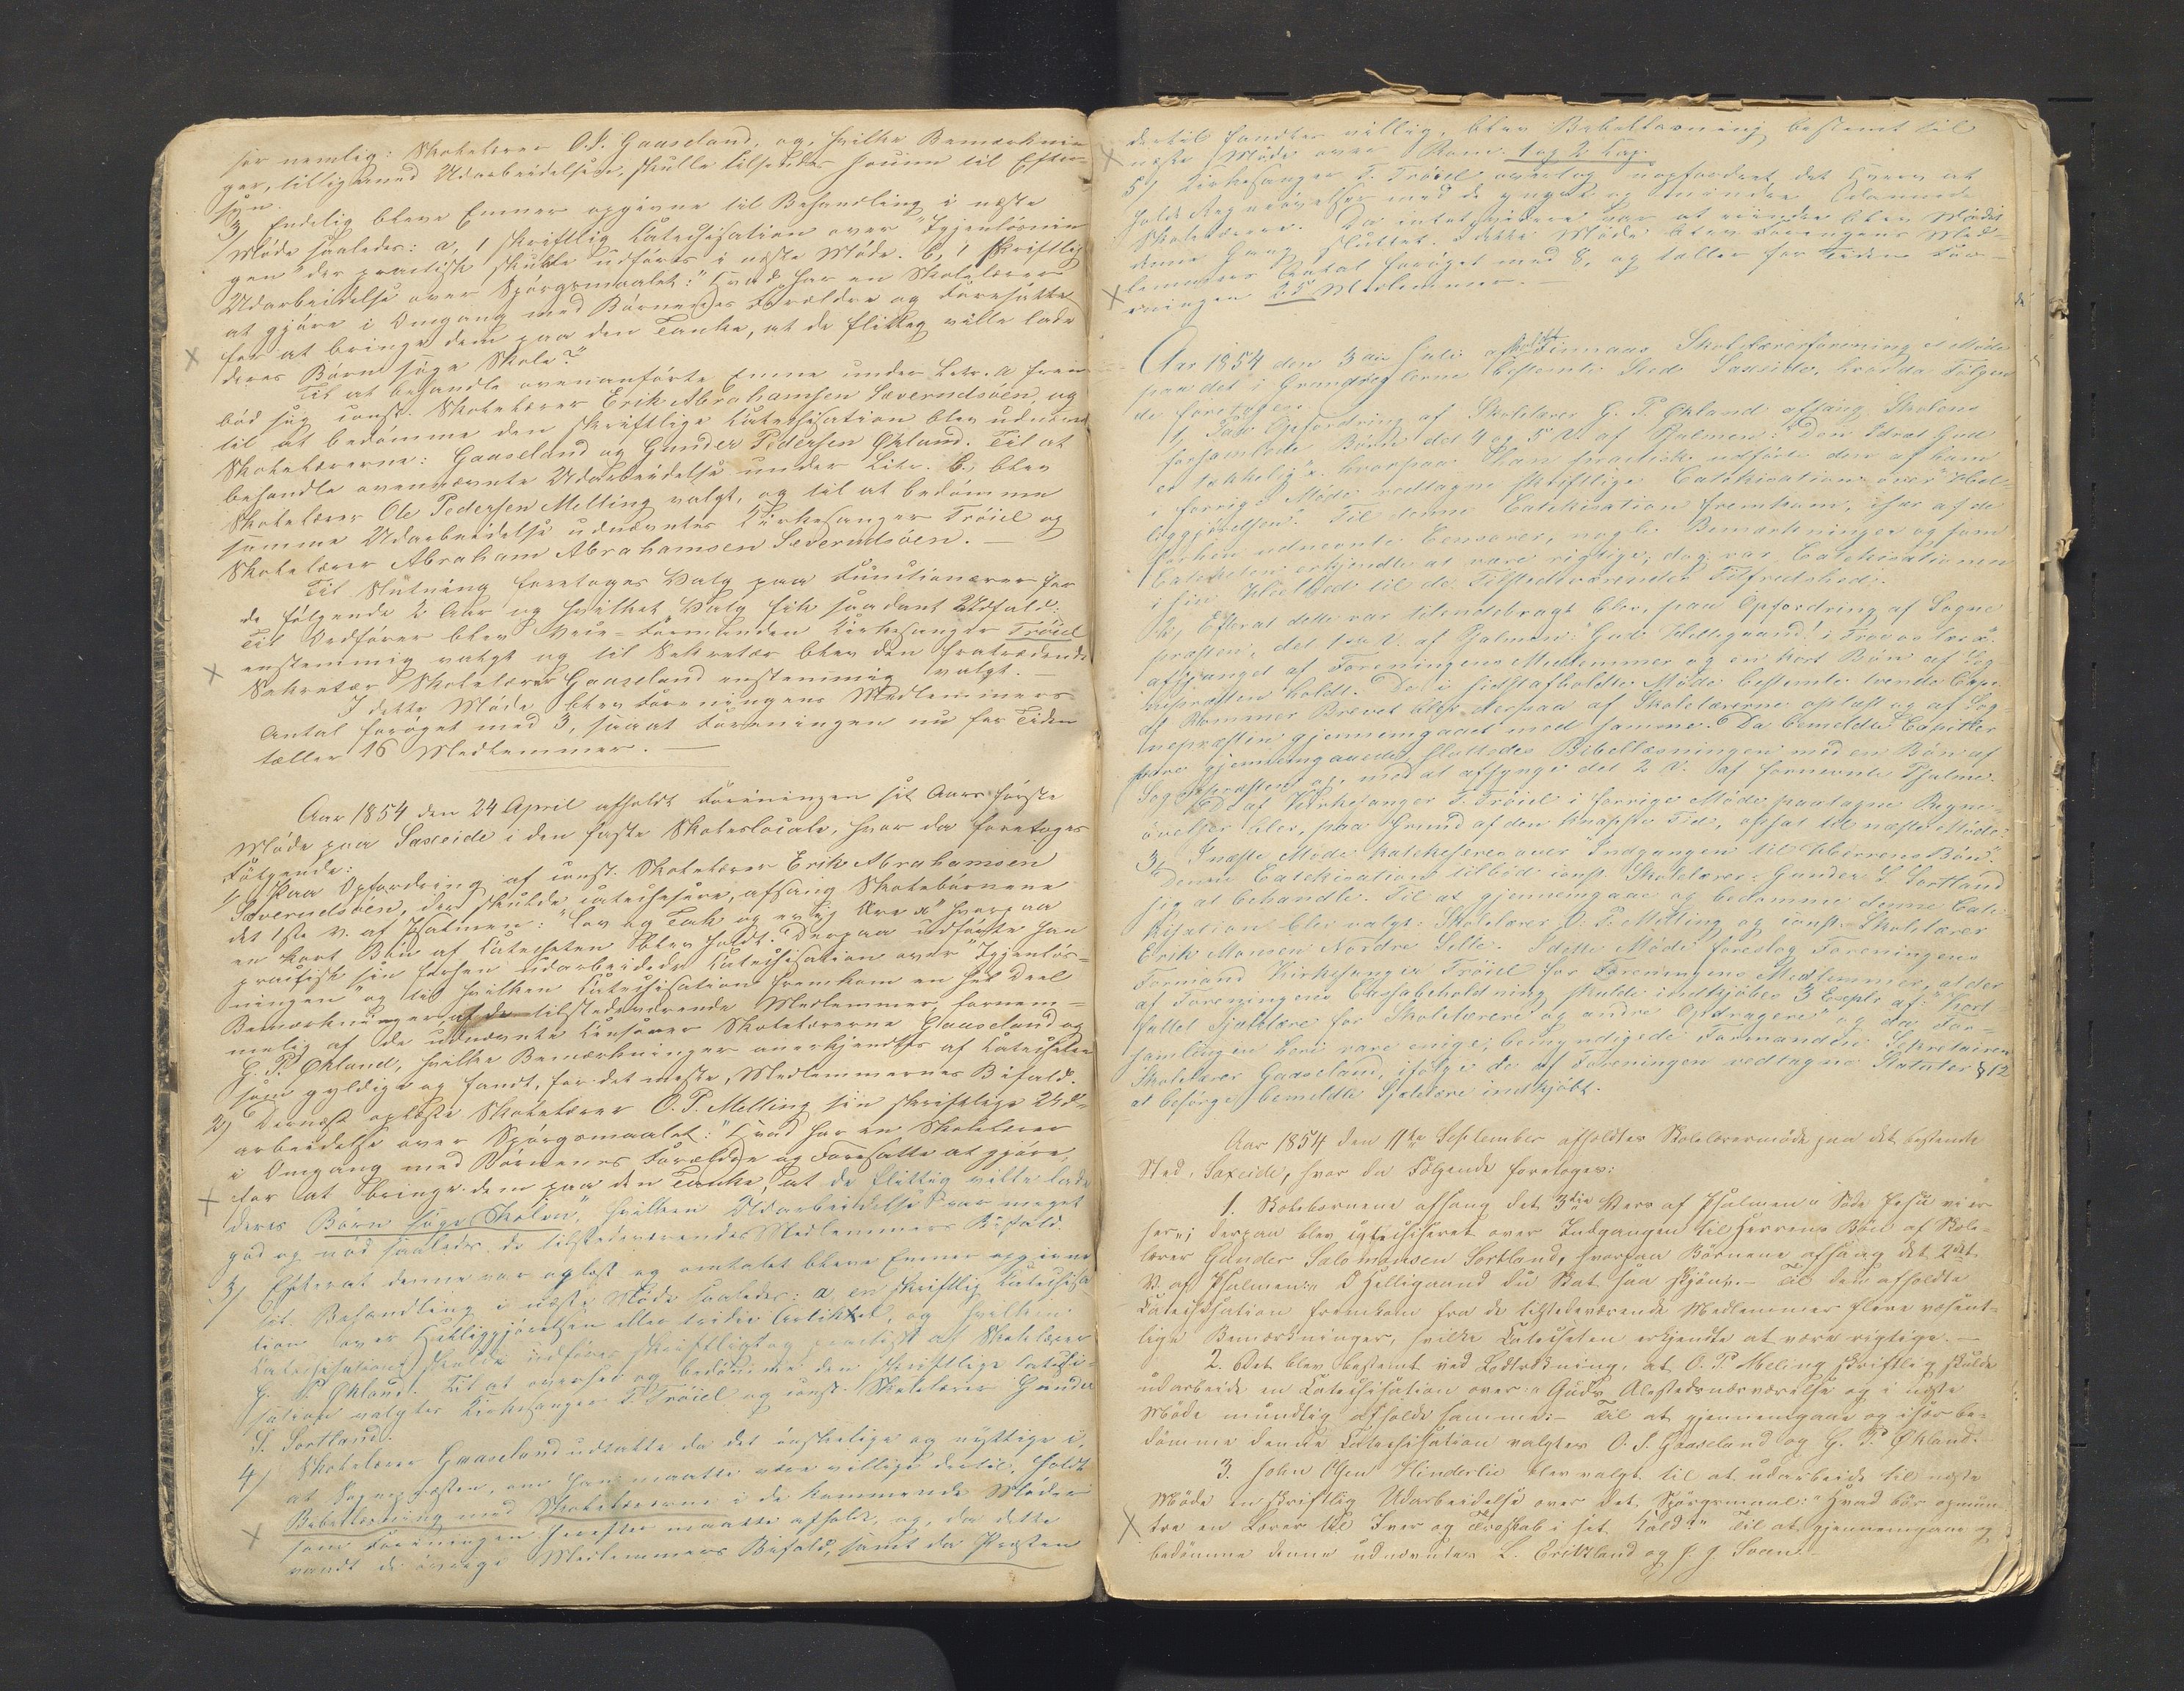 ser nemlig: Skolelærer O. S. Gaaseland, og, hvilke Bemærknin-
ger, tilligemed Udarbeidelsen, skulle tilsendes Hr. til Efter-
syn.
3/ Endelig bleve Emner opgivne til Behandling i næste
Møde saaledes: a, 1 skriftlig Catechisation over "Igjenløsnin
gen" der practisk skulde udføres i næste Møde. b, 1 skriftlig
Udarbeidelse over Spørgsmaalet: "Hvad har en Skolelærer
at gjøre i Omgang med Børnenes Forældre og Foresatte
for at bringe dem paa den Tanke, at de flittig ville lade
deres Børn søge Skole?"
Til at behandle ovenanførte Emne under Litr. a frem
bød sig const. Skolelærer Erik Abrahamsen Sæverudsøen, og
til at bedømme den skriftlige Catechisation blev udnævnt
Skolelærerne: Gaaseland og Gunder Pedersen Økland. Til at
behandle ovennævnte Udarbeidelse under Litr. b, blev
Skolelærer Ole Pedersen Melling valgt, og til at bedømme
samme Udarbeidelse udnævntes Kirkesanger Trøiel og
Skolelærer Abraham Abrahamsen Severudsøen. —
Til Slutning foretoges Valg paa Functionærer for
de følgende 2 Aar og hvilket Valg fik saadant Udfald:
Til Ordfører blev Vice-Formanden Kirkesanger Trøiel
enstemmig valgt og til Sekretær blev den fratrædende
Sekretær Skolelærer Gaaseland enstemmig valgt. —
I dette Møde blev Foreningens Medlemmers
Antal forøget med 3, saaat Foreningen nu for Tiden
tæller 16 Medlemmer. —
Aar 1854 den 24 April afholdt Foreningen sit Aars første
Møde paa Saxeide i den faste Skoleslocale, hvor da foretoges
Følgende:
1/ Paa Opfordring af const. Skolelærer Erik Abrahamsen
Sæverudsøen, der skulde catechisere, afsang Skolebørnene
det 1ste V. af Psalmen: "Lov og Tak og evig Ære &" hvorpaa
en kort Bøn af Catecheten blev holdt. Derpaa udførte han
practisk sin forhen udarbeidede Catechisation over "Igjenløs-
ningen" og til hvilken Catechisation fremkom en hel Deel
Bemærkninger af de tilstedeværende Medlemmer fornem-
melig af de udnævnte Censorer Skolelærerne Gaaseland og
G. P. Økland, hvilke Bemærkninger anerkjendtes af Catecheten
som gyldige og fandt, for det meste, Medlemmernes Bifald.
2) Dernæst oplæste Skolelærer O. P. Melling sin skriftlige Ud-
arbeidelse over Spørgsmaalet: "Hvad har en Skolelærer
i Omgang med Børnenes Forældre og Foresatte at gjøre,
for at bringe dem paa den Tanke, at de flittig ville lade
deres Børn søge Skolen", hvilken Udarbeidelse var meget
god og nød saaledes de tilstedeværende Medlemmers Bifald.
3) Efterat denne var oplæst og omtalet bleve Emner opgivne
til Behandling i næste Møde saaledes: a, en skriftlig Catechisa
tion over Helliggjørelsen eller tredie Artikkel, og hvilken
Catechisation skulde udføres skriftligt og practisk af Skolelærer
G. P. Økland. Til at oversee og bedømme den skriftlige Catechi-
sation valgtes Kirkesanger T. Trøiel og const. Skolelærer Gunder
S. Sortland.
4) Skolelærer Gaaseland udsatte da det ønskelige og nyttige i,
at Sognepræsten, om han maatte være villig dertil, holdt
Bibellæsning med Skolelærerne i de kommende Møder
som Foreningen herefter maatte afholde, og, da dette
vandt de øvrige Medlemmers Bifald, samt da Præsten
dertil fandtes villig, blev Bibellæsning bestemt til
næste Møde over Rom. 1 og 2 Cap.
5/ Kirkesanger T. Trøiel overtog uopfordret det Hverv at
holde Regneøvelser med de yngre og mindre Udannede
Skolelærere. Da intet videre var at erindre blev Mødet
denne Gang sluttet. I dette Møde blev Foreningens Med-
lemmers Antal forøget med 8, og tæller for Tiden For-
eningen 25 Medlemmer. —
Aar 1854 den 3die Juli afholdt Finnaas Skolelærerforening et Møde
paa det i Grundreglerne bestemte Sted Saxeide, hvor da Følgen
de foretoges:
1, Paa Opfordring af Skolelærer G. P. Økland afsang Skolens
forsamlede Børn det 4 og 5 V. af Psalmen: "Den Idræt Gud
er takkelig" &. hvorpaa Han practisk udførte den af ham
i forrige Møde vedtagne skriftlige Catekisation over "Hel-
liggjørelsen". Til denne Catekisation fremkom, især af de
forhen udnævnte Censorer, nogle Bemærkninger og som
Catecheten erkjendte at være rigtige; dog var Catekisationen
i sin Heelhed til de Tilstedeværendes Tilfredshed.
2, Efterat dette var tilendebragt blev, paa Opfordring af Sogne
præsten, det 1ste V. af Psalmen: "Gud Helligaand! i Tro os lær &".
afsjunget af Foreningens Medlemmer og en kort Bøn af Sog-
nepræsten holdt. De i sidstafholdte Møde bestemte tvende Cap.
af Rommer Brevet blev derpaa af Skolelærerne oplæst og af Sog-
nepræsten gjennemgaaet med samme. Da bemeldte Capitler
vare gjennemgaaede, sluttedes Bibellæsningen med en Bøn af
Sognepræsten og, med at afsynge det 2 V. af fornevnte Psalme.
De af Kirkesanger T. Trøiel i forrige Møde paatagne Regne-
øvelser blev, paa Grund af den knappe Tid, opsat til næste Møde.
3, I næste Møde katekiseres over "Indgangen til Herrens Bøn".
Denne Catekisation tilbød const. Skolelærer Gunder S. Sortland
sig at behandle. Til at gjennemgaae og bedømme denne Cate-
kisation blev valgt: Skolelærer O. P. Melling og const. Skolelærer
Erik Monsen Nordre Selle. I dette Møde foreslog Foreningens
Formand Kirkesanger Trøiel for Foreningens Medlemmer, at der
af Foreningens Cassabeholdning skulde indkjøbes 3 Expl. af: "Kort-
fattet Sjælelære for Skolelærere og andre Opdragere" og da For-
samlingen heri vare enige, bemyndigede Formanden Sekretairen
Skolelærer Gaaseland, ifølge de af Foreningen vedtagne Statuter § 12
at besørge bemeldte Sjælelære indkjøbt.
Aar 1854 den 11te September afholdtes Skolelærermøde paa det bestemte
Sted, Saxeide, hvor da Følgende foretoges:
1. Skolebørnene afsang det 3die Vers af Psalmen "Søde Jesu vi er
her"; derpaa blev catechiseret over Indgangen til Herrens Bøn af Skole-
lærer Gunder Salomonsen Sortland, hvorpaa Børnene afsang det 2det
V. af Psalmen: "O Helligaand du Skat saa skjøn". — Til den afholdte
Catechisation fremkom fra de tilstedeværende Medlemmer flere væsent-
lige Bemærkninger, hvilke Catecheten erkjendte at være rigtige. —
2. Det blev bestemt ved Lodtrækning, at O. P. Meling skriftlig skulde
udarbeide en Catechisation over "Guds Alestedsnærværelse" og i næste
Møde mundtlig afholde samme. — Til at gjennemgaae og især be-
dømme denne Catechisation valgtes O. S. Gaaseland og G. P. Økland. —
3. John Olsen Hinderlie blev valgt til at udarbeide til næste
Møde en skriftlig Udarbeidelse over det Spørgsmaal: "Hvad bør opmun-
tre en Lærer til Iver og Troskab i sit Kald?" Til at gjennemgaae og
bedømme denne udnævntes L. Eritzland og J. J. Svan—